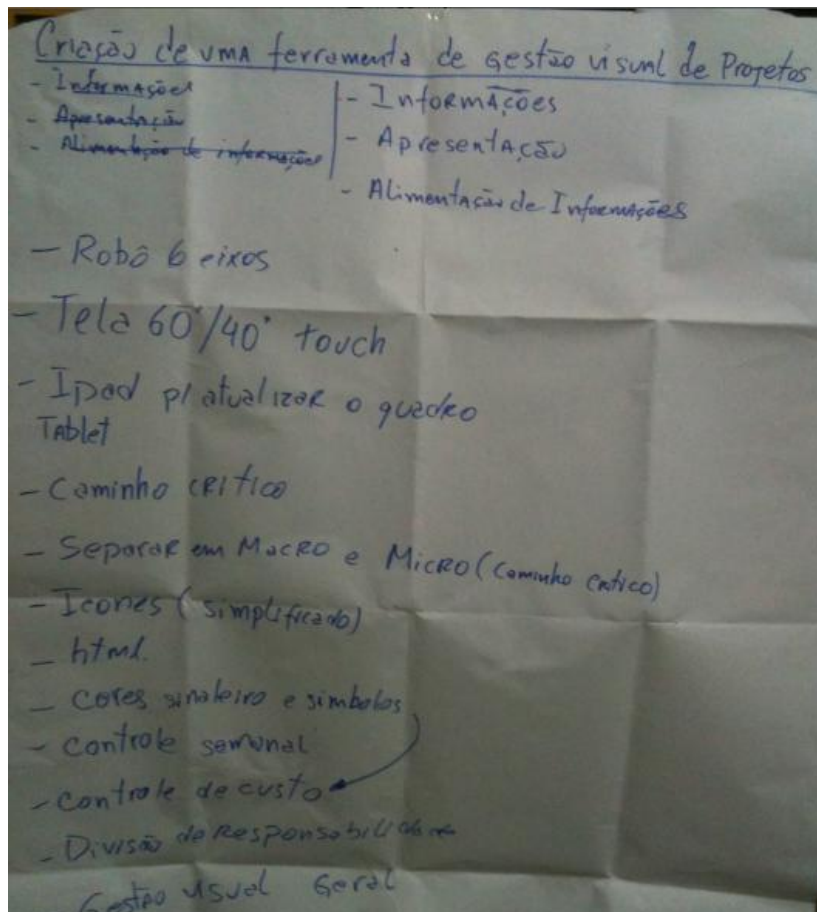 Criação de uma ferramenta de Gestão visual de Projetos
- Informações
- Apresentação
- Alimentação de informações
- Informações
- Apresentação
- Alimentação de Informações
- Robô 6 eixos
- Tela 60"/40" touch
- Ipad p/ atualizar o quadro
Tablet
- Caminho critico
- Separar em Macro e Micro (Caminho critico)
- Icones (simplificado)
- html.
- cores sinaleiro e simbolos
- controle semanal
- controle de custo
- Divisão de Responsabilidade
Gestão visual Geral